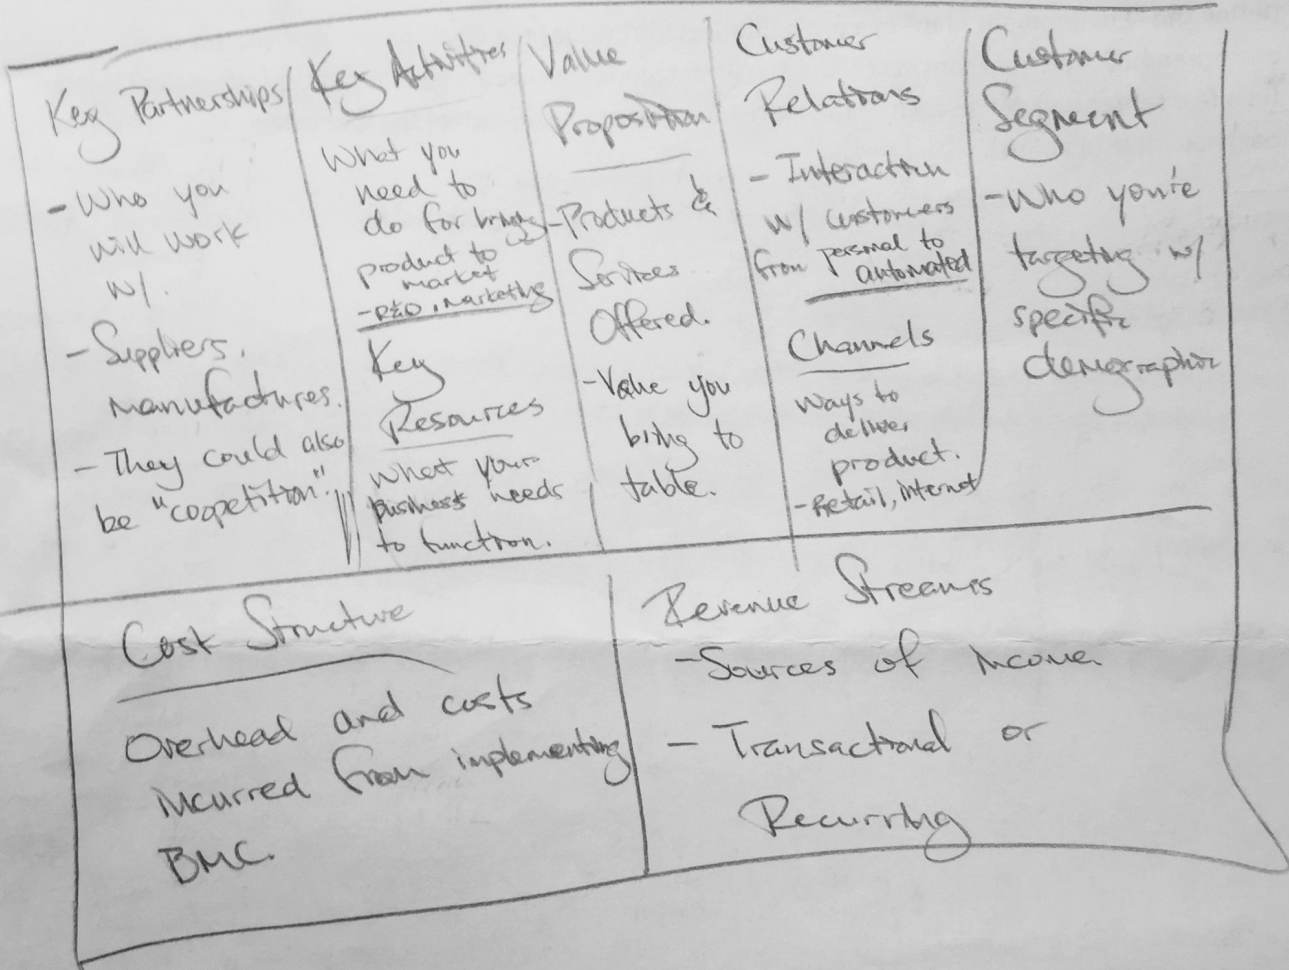 Key Partnerships
- Who you
will work
w/.
- Suppliers,
manufactures.
- They could also
be "coopetition".
Key Activities
What you
need to
do for bringing
product to
market
- R&D, marketing
Key
Resources
What your
business needs
to function.
Value
Proposition
- Products &
Services
Offered.
- Value you
bring to
table.
Customer
Relations
- Interaction
w/ customers
from personal to
automated
Channels
ways to
deliver
product.
- Retail, internet
Customer
Segment
- Who you're
targeting w/
specific
demographic
Cost Structure
Overhead and costs
incurred from implementing
BMC.
Revenue Streams
- Sources of income.
- Transactional or
Recurring